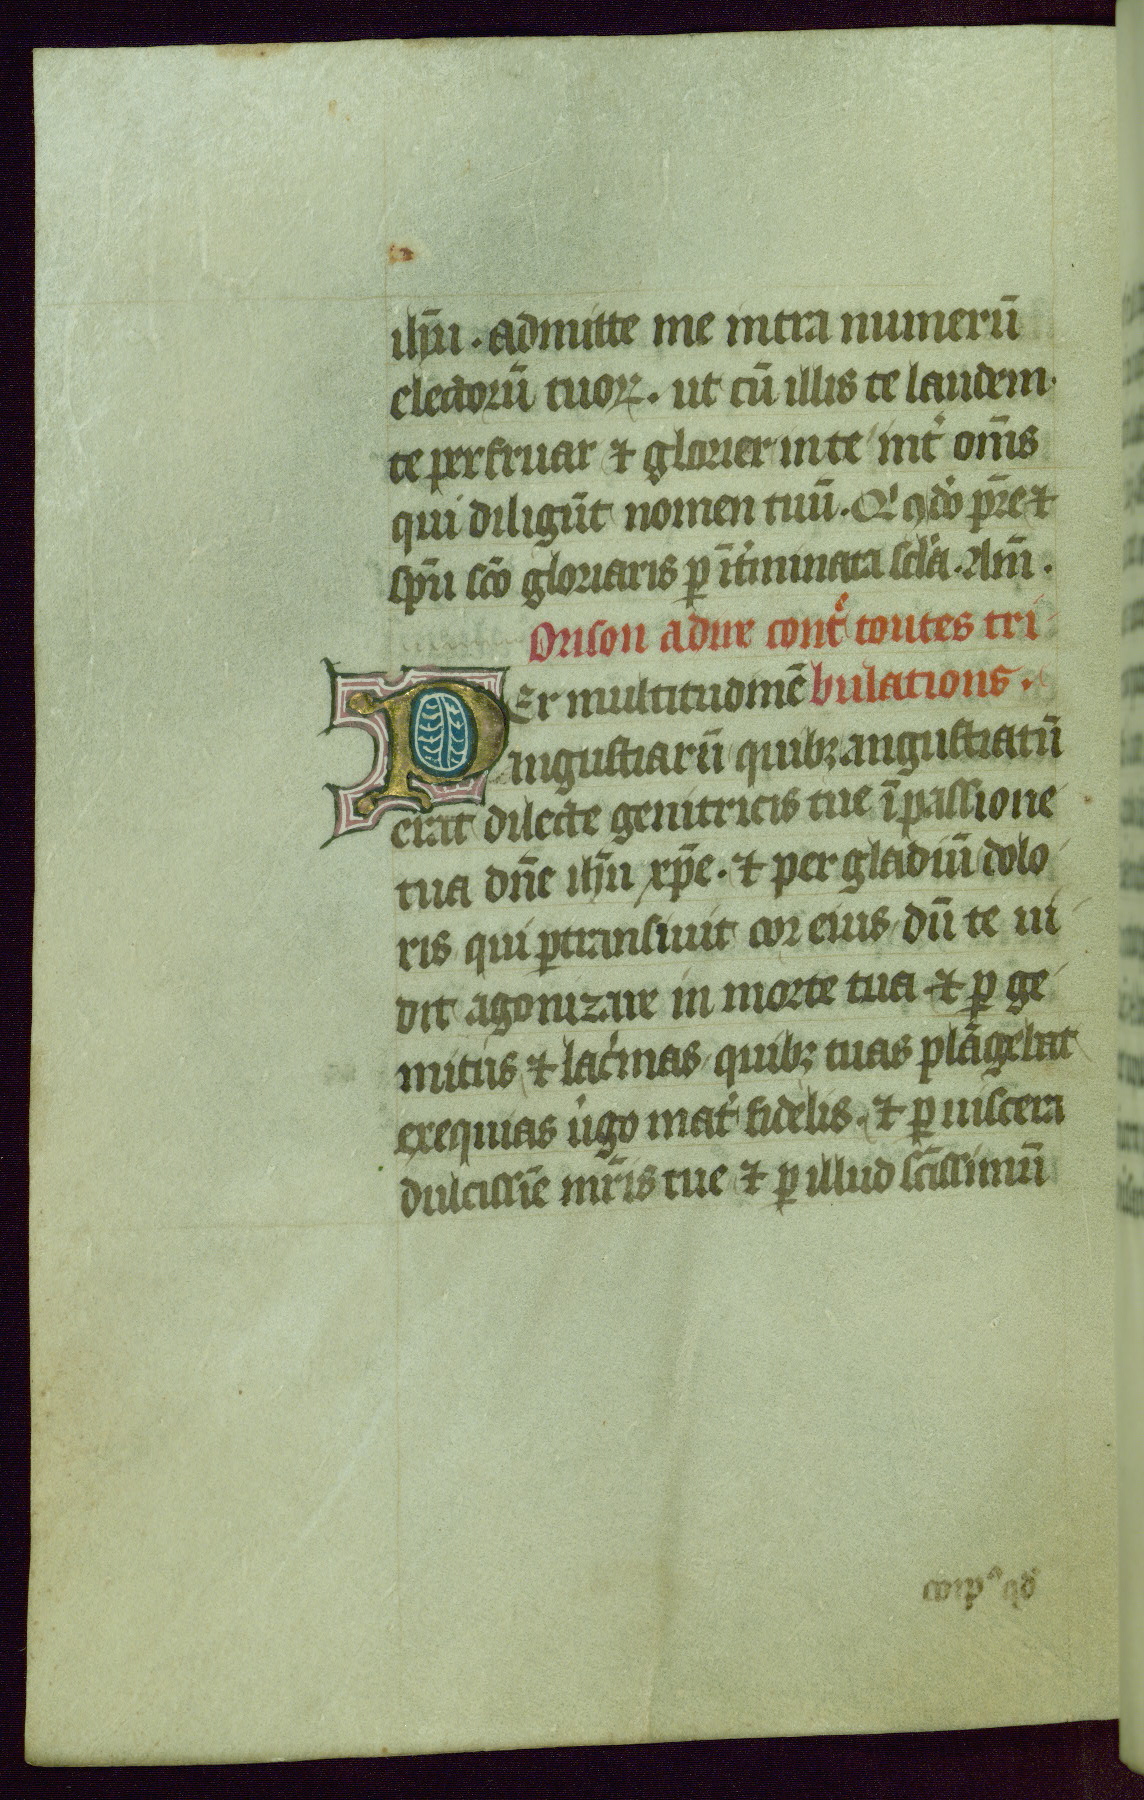 ihu̅. admitte me intra numeru̅
electoru̅ tuoꝝ. ut cu̅ illis te laudem.
te perfruar ⁊ glorier in te int̾ om̅s
qui diligu̅t nomen tuu̅. Q̾ cu̅ deo pr̅e ⁊
sp̅u sc̅o gloriaris ꝑ i̅t̾minata sc̅l̾a. Am̅.
Orison a dire cont̾ toutes tri
Per multitudine̅ bulations.
angustiaru̅ quibꝫ angustiatu̅
erat dilecte genitricis tue i̅ passione
tua dn̅e ihu̅ xp̅e. ⁊ per gladiu̅ dolo
ris qui ꝑtransiuit cor eius du̅ te ui
dit agonizare in morte tua ⁊ ꝑ ge
mitus ⁊ lac̾mas quibꝫ tuas pla̅gebat
exequias u̾go mat̾ fidelis. ⁊ ꝑ uiscera
dulcissi̅e mr̅is tue ⁊ ꝑ illud sc̅issimu̅
corpꝰ